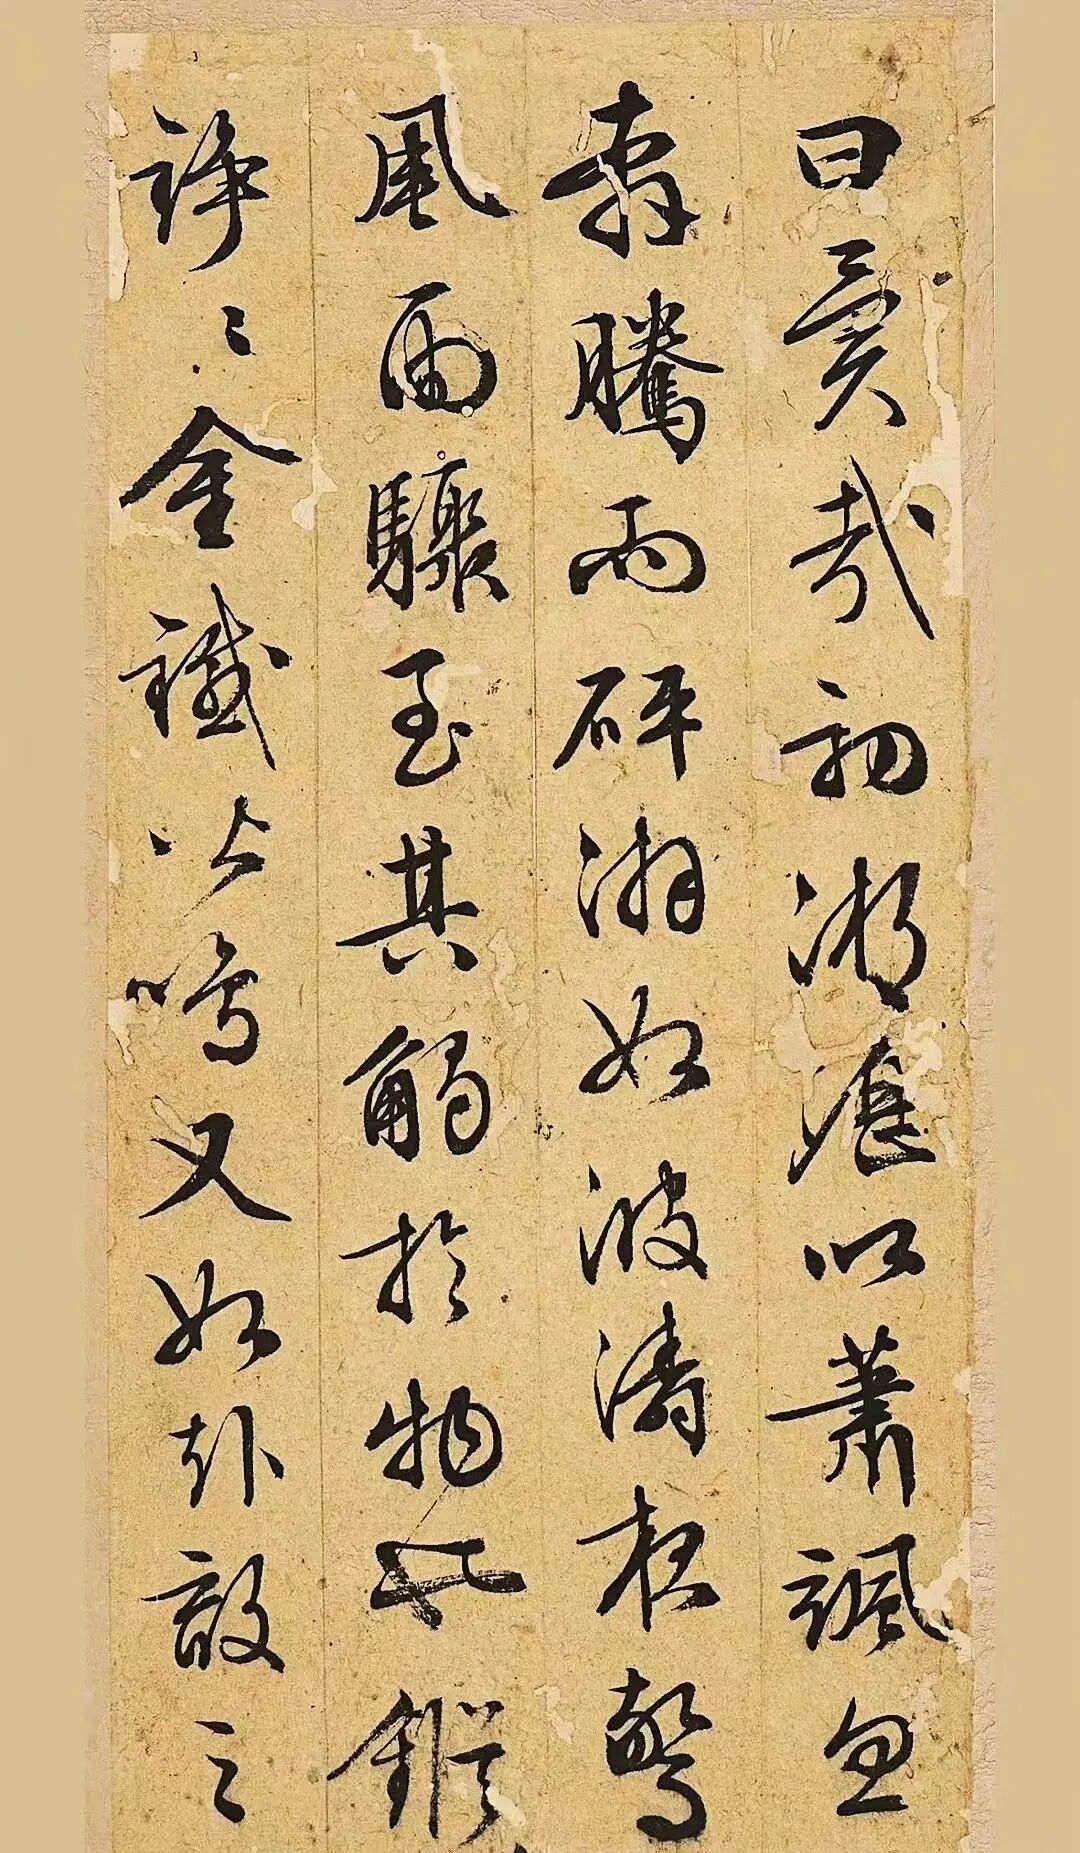 曰異哉初淅瀝以蕭颯忽
奔騰而砰湃如波濤夜驚
風雨驟至其觸於物也鏦
錚々金鐵皆鳴又如赴敵之